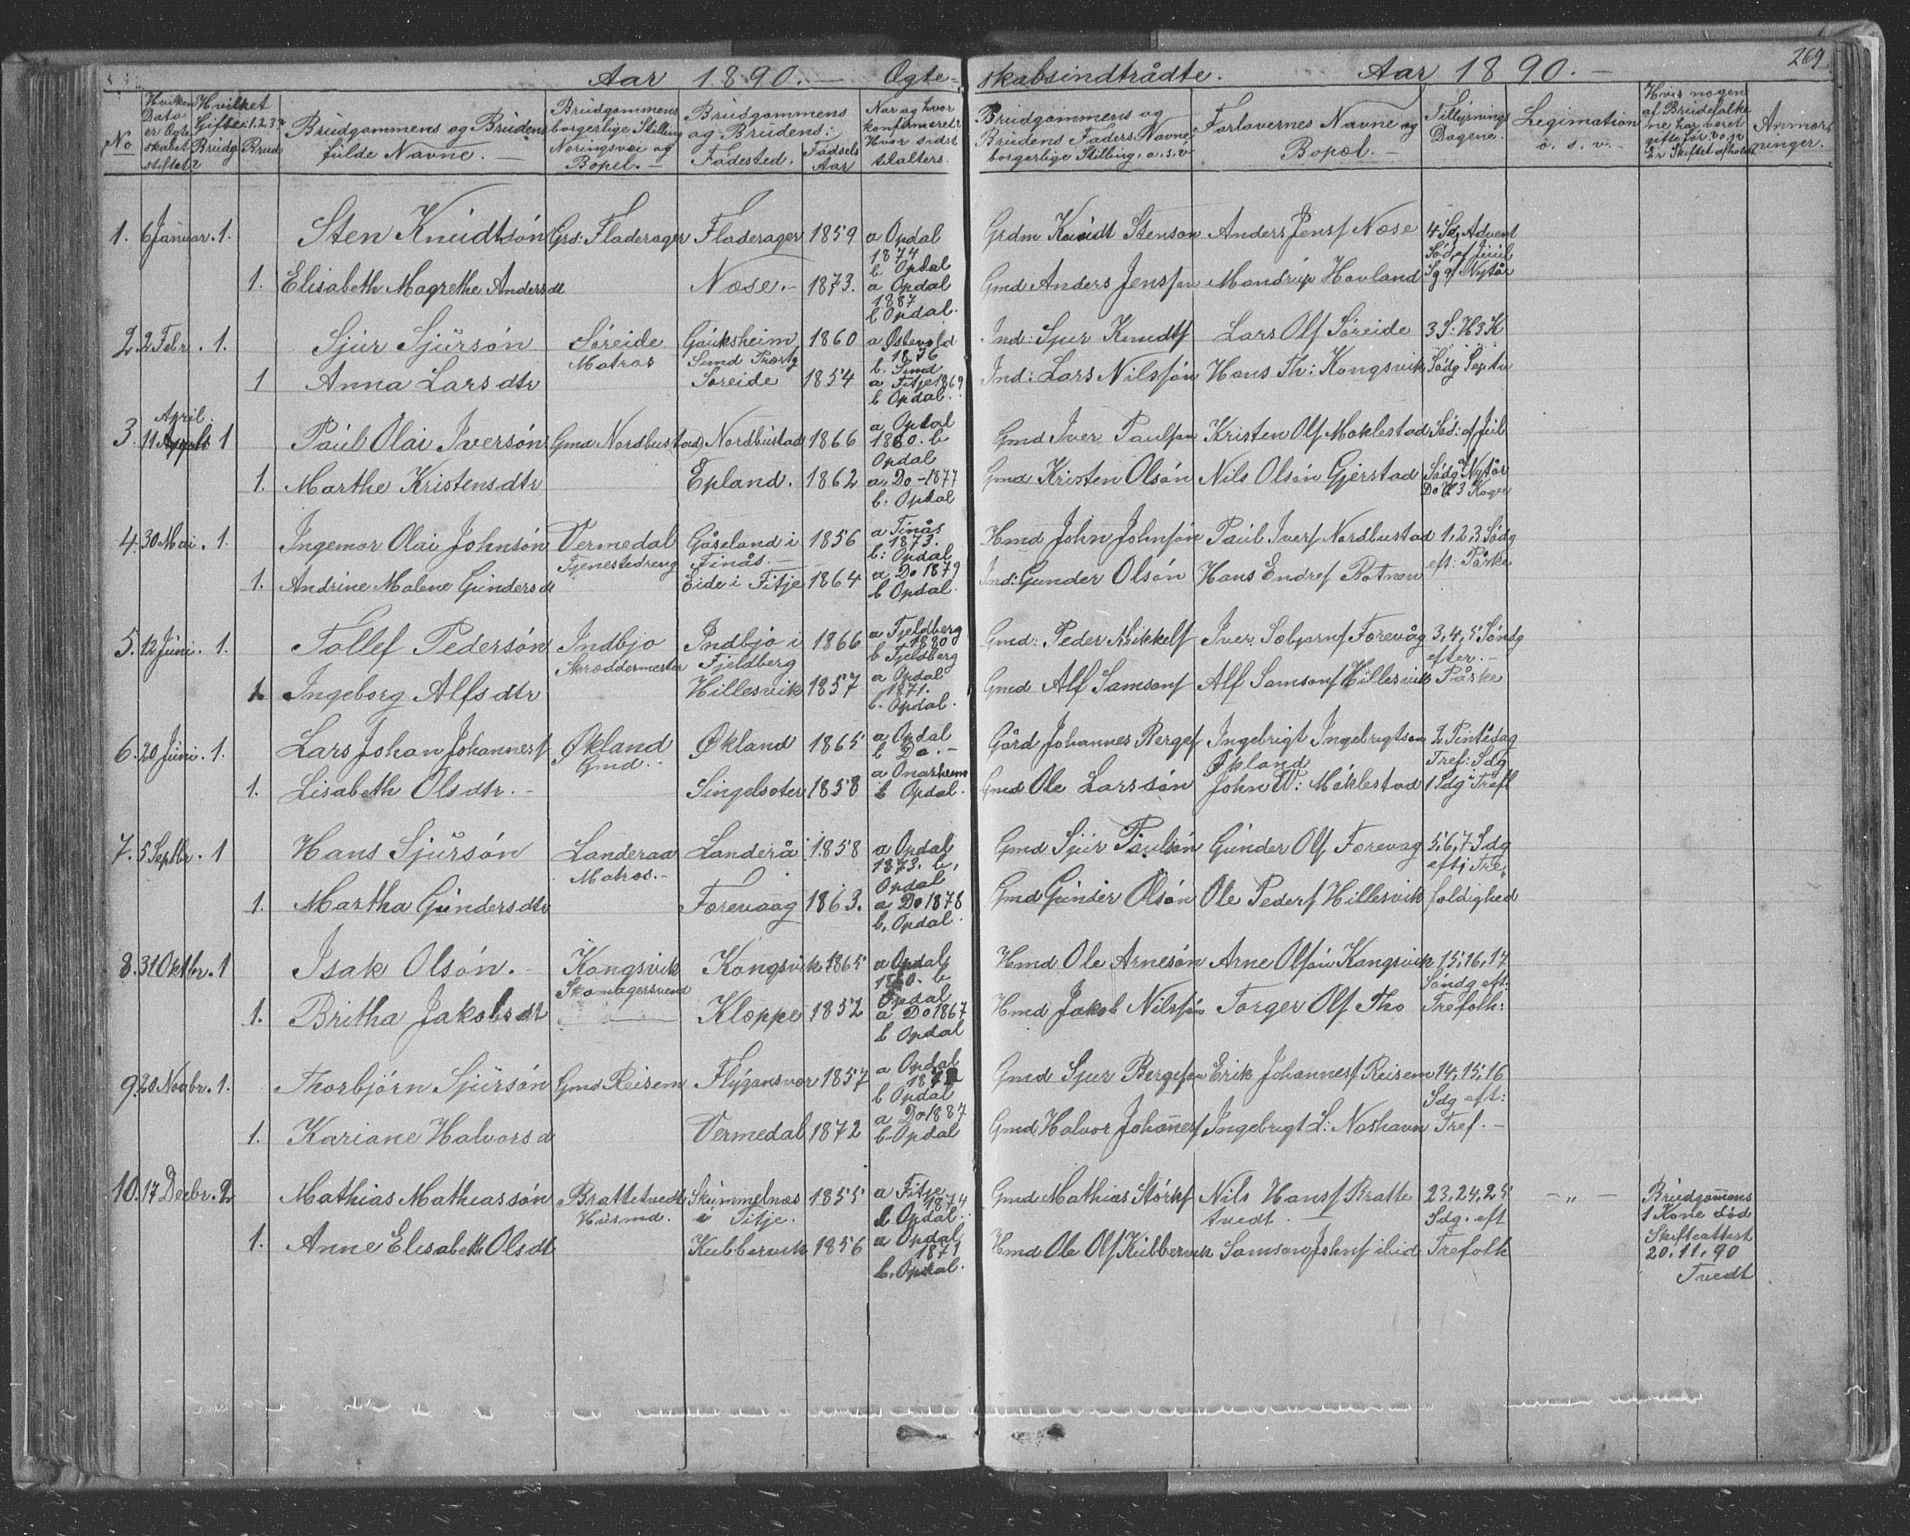 Aar 1890. — Ægte-
skabsindtrådte. Aar 1890. —
269
No
Hvilken Dato er Ægteskabet stiftet?
Hvilket Gifte: 1.2.3.
Brudg Brud
Brudgommens og Brudens fulde Navne. —
Brudgommens borgerlige Stilling Næringsvei og Bopel. —
Brudgommens og Brudens:
Fødested. Fødsels Aar
Nar og hvor konfirmeret? Hvor sidst tilalters.
Brudgommens og Brudens Faders Navne, borgerlige Stilling, o.s.v.
Forlovernes Navne og Bopæl. —
Tillysnings Dagene.
Legimation o. s. v. —
Hvis nogen af Brudefolkene har været gifte før
Er Skiftet afholdt
Anmærkninger.
1. 6 Januar. 1. Sten Knudtsön Grd: Fladerager Fladerager 1859 a Opdal 1874 b. Opdal Grdm Knudt Stenson Anders Jensf Næse 4 Sd, Advent
Sød. ef Juul
1. Elisabeth Magrethe Andersdt Næse. - 1873. a Opdal 1887 b Opdal. Gmd Anders Jensson Mandrup Hovland Sg ef Nytår
2. 2 Febr. 1. Sjur Sjürsön Søreide Matros Gauksheim Sund Præstg 1860 a Østevold 1876 b. Sund Ind: Sjur Knudtf Lars Olf Søreide 3 S: H3K
1 Anna Larsdtr Søreide 1854 a Fitje 1869 b Opdal. Ind: Lars Nilssön Hans Th: Kongsvik Sødg Septu
3. 11 April 1 Paul Olai Iversön Gmd Nordbustad Nordbustad 1866 a Opdal 1880. b Opdal Gmd Iver Paulson Kristen Olf Møklestad Sød: ef Juil
1. Marthe Kristensdtr Epland. 1862 a. Do - 1877 b. Opdal Gmd Kristen Olsön Nils Olsön Gjerstad Sødg Nytår
Do H 3 Koger
4. 30 Mai. 1. Ingemor Olai Johnsön Vermedal Tjenestedreng Gåseland i Finås. 1856 a Finås 1873. b: Opdal Hmd John Johnsön Paul Iversf Nordbustad 1, 2, 3 Sødg
eft: Påske
1. Andrine Malene Gundersdt Eide i Fitje 1864 a. Do 1879 b Opdal Ind: Gunder Olsön Hans Endresf Rotnou
5. 12 Juni. 1. Tollef Pedersön Indbjo Skræddermester Indbjo i Fjeldberg 1866 a Fjeldberg 1880 b Fjeldberg Gmd: Peder Mikkelsf Iver Sobjørnsf Forevåg 3, 4, 5 Søndg
efter. -
1. Ingeborg Alfsdtr Hillesvik 1857 a Opdal 1871. b. Opdal. Gmd Alf Samsonsf Alf Samsonsf Hillesvik Påske
6. 20 Juni. 1. Lars Johan Johannesf Økland Gmd. Økland 1865 a Opdal b Do. - Gård Johannes Bergesf Ingebrigt Ingebrigtson Økland 2 Pintsdag
Tref: Sdg
1. Lisabeth Olsdtr. - Singelsæter 1858 a Onarheim b Opdal. Gmd Ole Larssön John W: Møklestad 1 Sdg i Trefl
7. 5 Septbr. 1 Hans Sjürsön Landeraa Matros. - Landerå 1858 a Opdal 1873. b. Opdal Gmd Sjur Paulsön Günder Olf Forevag 5, 6, 7 Sdg
eft: Tre,
1. Martha Gündersdtr Forevaag 1863. a Do 1878 b. Opdal. Gmd Günder Olsön Ole Pedersf Hillesvik foldighed
8. 31 Oktbr. 1 Isak Olsön. - Kongsvik Skomagersvend Kongsvik 1865 a Opdal 1880. b Opdal Hmd Ole Arnesön Arne Olsön Kongsvik 15, 16, 17
Søndg eft:
1. Britha Jakobsdt Kloppe 1852 a Do 1867 b Opdal Hmd Jakob Nilssön Torger Olf Tho Trefolh:
9. 20 Novbr. 1. Thorbjörn Sjürsön Gmd Reisem Flygansvær 1857 a Opdal b Opdal Gmd Sjur Bergeson Erik Johannesf Reisem 14, 15, 16
Sdg eft:
1. Kariane Halvorsd Vermedal 1872 a Do 1887 b Opdal Gmd Halvor Johannesf Ingebrigt L: Neshavn Tref. -
10. 17 Decbr. 2 Mathias Mathiassön Brattetvedt Husmd. Skummelnæs i Fitje. 1855 a Fitje 1874 b Opdal. Gmd Mathias Størksf Nils Hansf Brattetvedt 23, 24, 25
Sdg. eft — „ — Brudgommens 1 Kone død Skifteattest 20. 11. 90 Tvedt
1. Anne Elisabeth Olsdt Kubbervik 1856 a Opdal 1871 b. Opdal. Hmd Ole Olsf Kubbervik Samson Johnsf ibid Trefolh